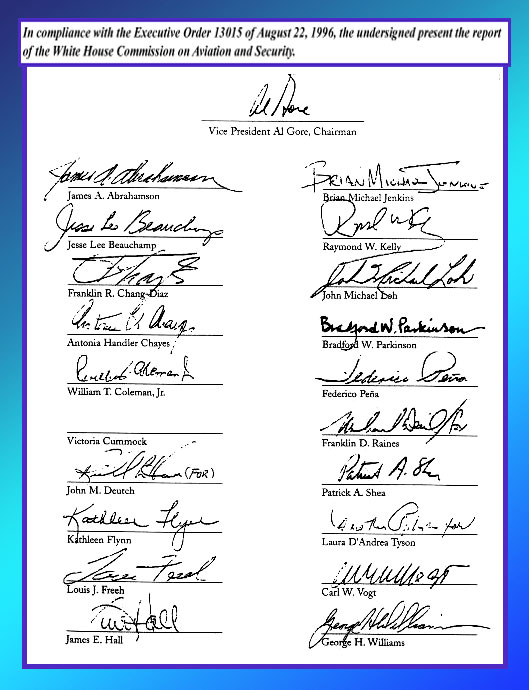 In compliance with the Executive Order 13015 of August 22, 1996, the undersigned present the report
of the White House Commission on Aviation and Security.
Al Gore
Vice President Al Gore, Chairman
James A. Abrahamson
James A. Abrahamson
Jesse Lee Beauchamp
Jesse Lee Beauchamp
Franklin R. Chang-Diaz
Antonia Handler Chayes
William T. Coleman, Jr.
Victoria Cummock
(FOR)
John M. Deutch
Kathleen Flynn
Kathleen Flynn
Louis J. Freeh
Louis Freeh
James E. Hall
Jim Hall
BRIAN MICHAEL JENKINS
Brian Michael Jenkins
Raymond W. Kelly
John Michael Loh
John Michael Loh
Bradford W. Parkinson
Bradford W. Parkinson
Federico Peña
Federico Peña
Franklin D. Raines
Patrick A. Shea
Patrick A. Shea
for
Laura D'Andrea Tyson
Carl W. Vogt
George H. Williams
George H. Williams